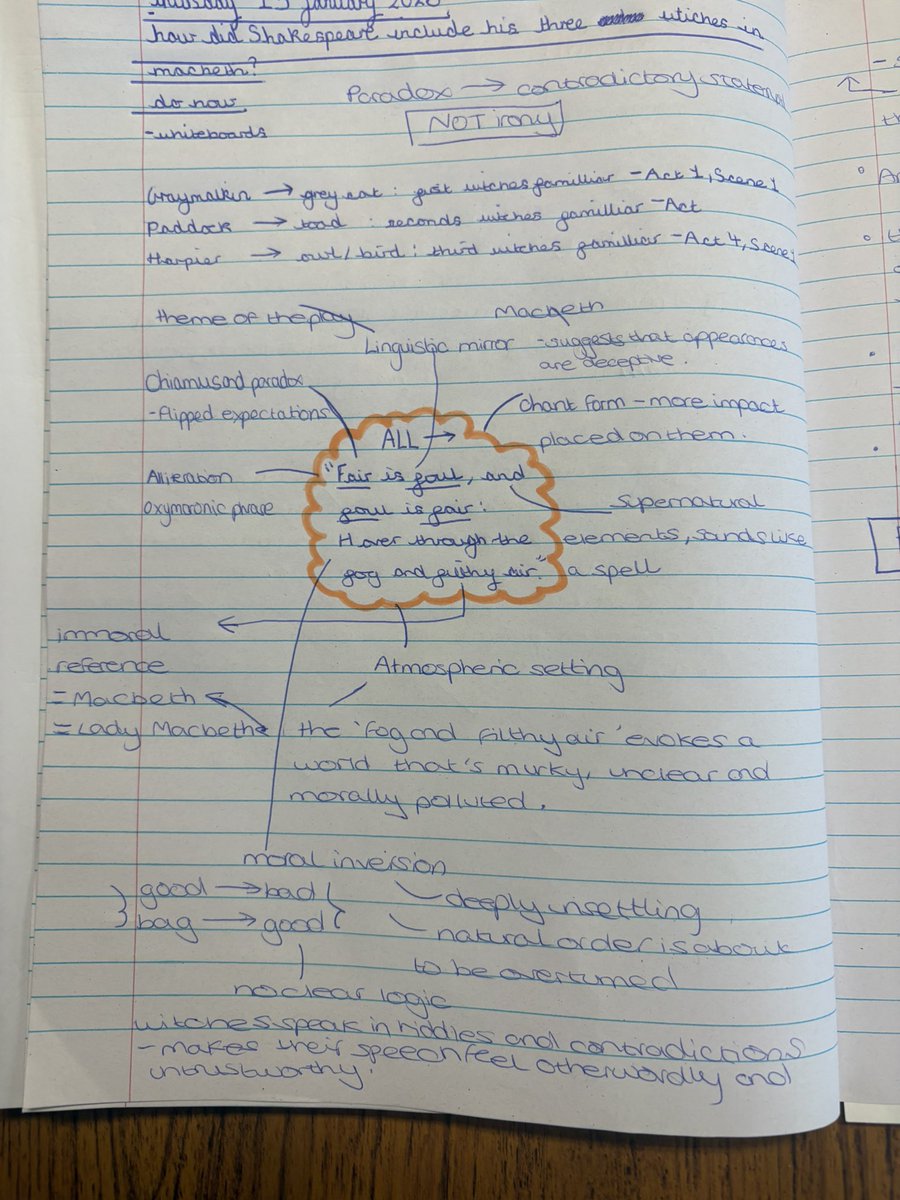 January
how did Shakespeare include his three witches in
macbeth?
do now
-whiteboards
Paradox → contradictory statement
NOT irony
Graymalkin → grey cat : first witches familliar - Act 1, Scene 1
Paddock → toad : seconds witches familliar - Act
Harpier → owl/bird : third witches familliar - Act 4, Scene 1
theme of the play
Linguistic mirror
Macbeth
-suggests that appearances
are deceptive.
Chiamus and paradox
-flipped expectations
Chant form - more impact
placed on them.
Alieration
oxymoronic phrase
ALL →
"Fair is foul, and
foul is fair:
Hover through the
fog and filthy air."
Supernatural
elements, sounds like
a spell
immoral
reference
= Macbeth
= Lady Macbeth
Atmospheric setting
the 'fog and filthy air' evokes a
world that's murky, unclear and
morally polluted.
moral inversion
good → bad
bag → good
deeply unsettling
natural order is about
to be overturned
no clear logic
witches speak in riddles and contradictions
- makes their speech feel otherwordly and
untrustworthy.